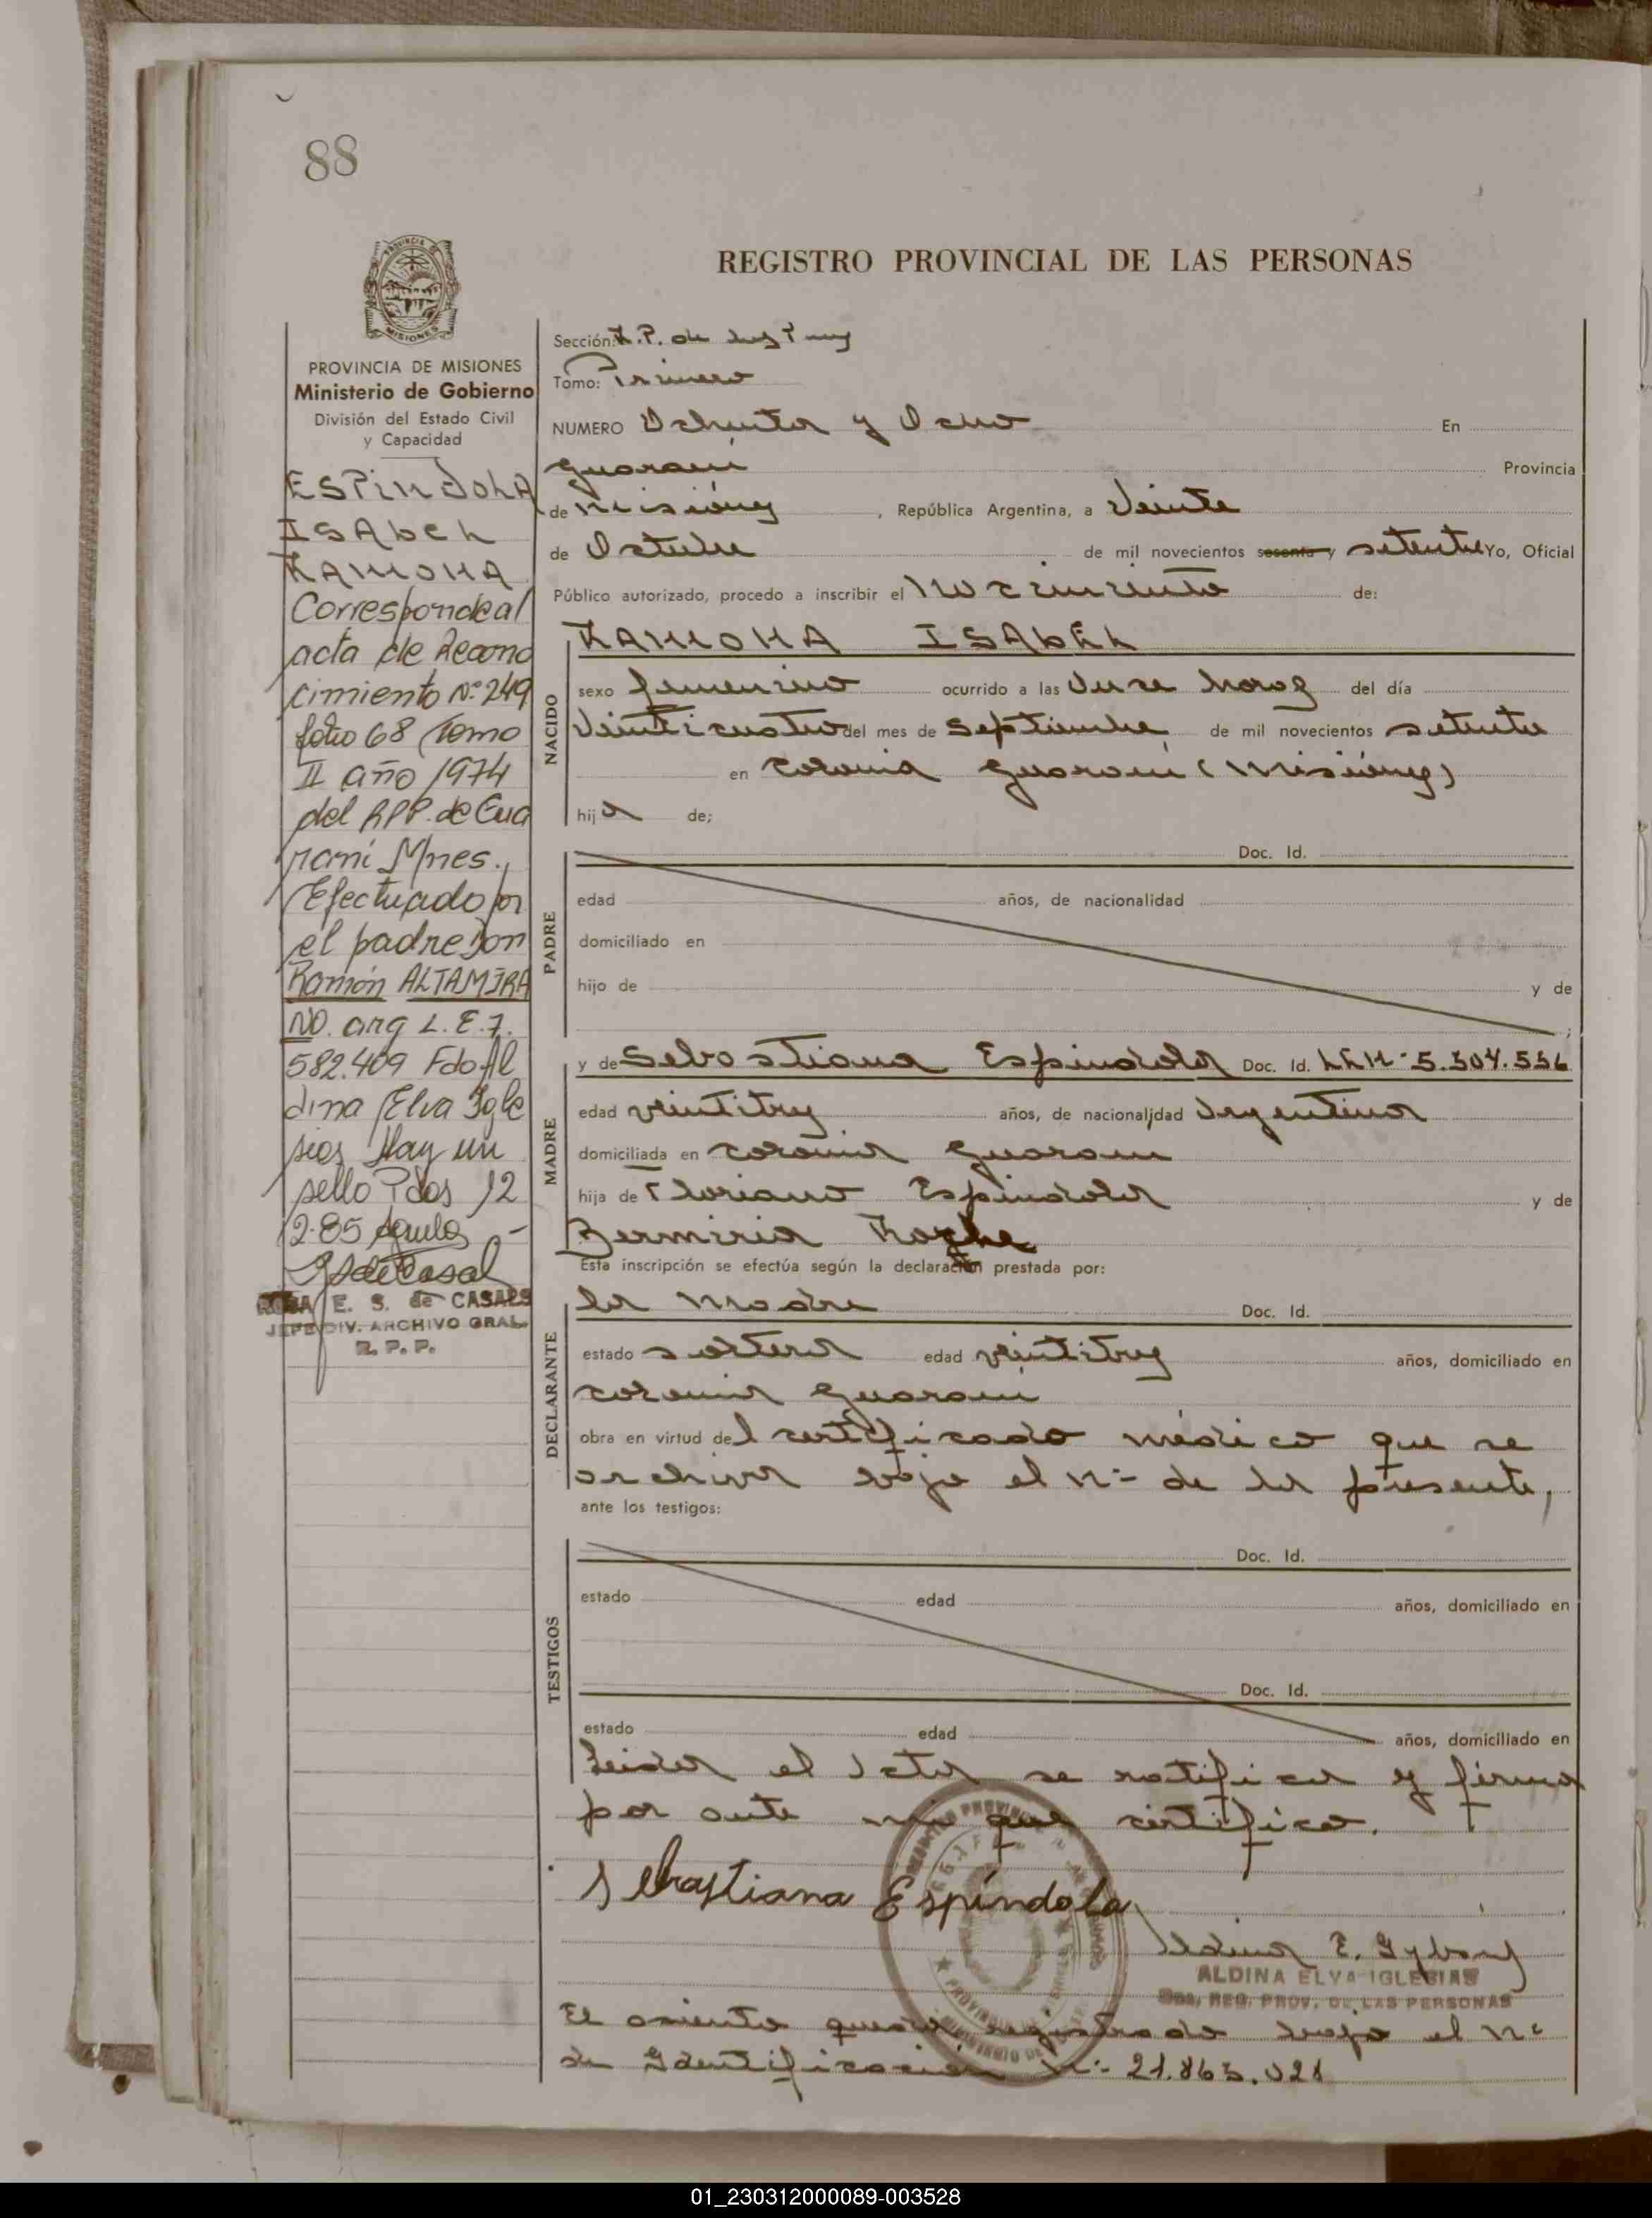 88
REGISTRO PROVINCIAL DE LAS PERSONAS
PROVINCIA DE MISIONES
Ministerio de Gobierno
División del Estado Civil
y Capacidad
ESPINDOLA
ISAbEL
RAMONA
Corresponde al
acta de Recono
cimiento Nº 249
folio 68 Tomo
II año 1974
del RPP. de Gua
rani Mnes.,
Efectuado por
el padre Don
Ramón ALTAMIRA
ND. arg L.E.7.
582.409 Fdo Al
dina Elva Igle
sias Hay un
sello Pdas 12
2-85
E. S. de CASALS
JEFE DIV. ARCHIVO GRAL.
R. P. P.
Sección: R.P. de las
Tomo: Primero
NUMERO Ochenta y Ocho En
Guarani Provincia
de Misiones, República Argentina, a Veinte
de Octubre de mil novecientos sesenta y setenta Yo, Oficial
Público autorizado, procedo a inscribir el Nacimiento de:
NACIDO
RAMONA ISAbEL
sexo femenino ocurrido a las Once horas del día
Veinticuatro del mes de Septiembre de mil novecientos setenta
en colonia Guarani (Misiones)
hija de;
PADRE
Doc. Id.
edad años, de nacionalidad
domiciliado en
hijo de y de
;
MADRE
y de Sebastiana Espindola Doc. Id. 5.504.556
edad veintitres años, de nacionalidad Argentina
domiciliada en colonia Guarani
hija de Floriano Espindola y de
Esta inscripción se efectúa según la declaración prestada por:
DECLARANTE
la Madre Doc. Id.
estado soltera edad veintitres años, domiciliado en
colonia Guarani
obra en virtud del certificado médico que se
archiva bajo el Nº de la presente,
ante los testigos:
TESTIGOS
Doc. Id.
estado edad años, domiciliado en
Doc. Id.
estado edad años, domiciliado en
Leida el Acta se ratifica y firma
por ante mi que certifico.
Sebastiana Espíndola
ALDINA ELVA IGLESIAS
REG. PROV. DE LAS PERSONAS
El asiento queda registrado bajo el Nº
de Identificación Nº 21.863.028
01_230312000089-003528